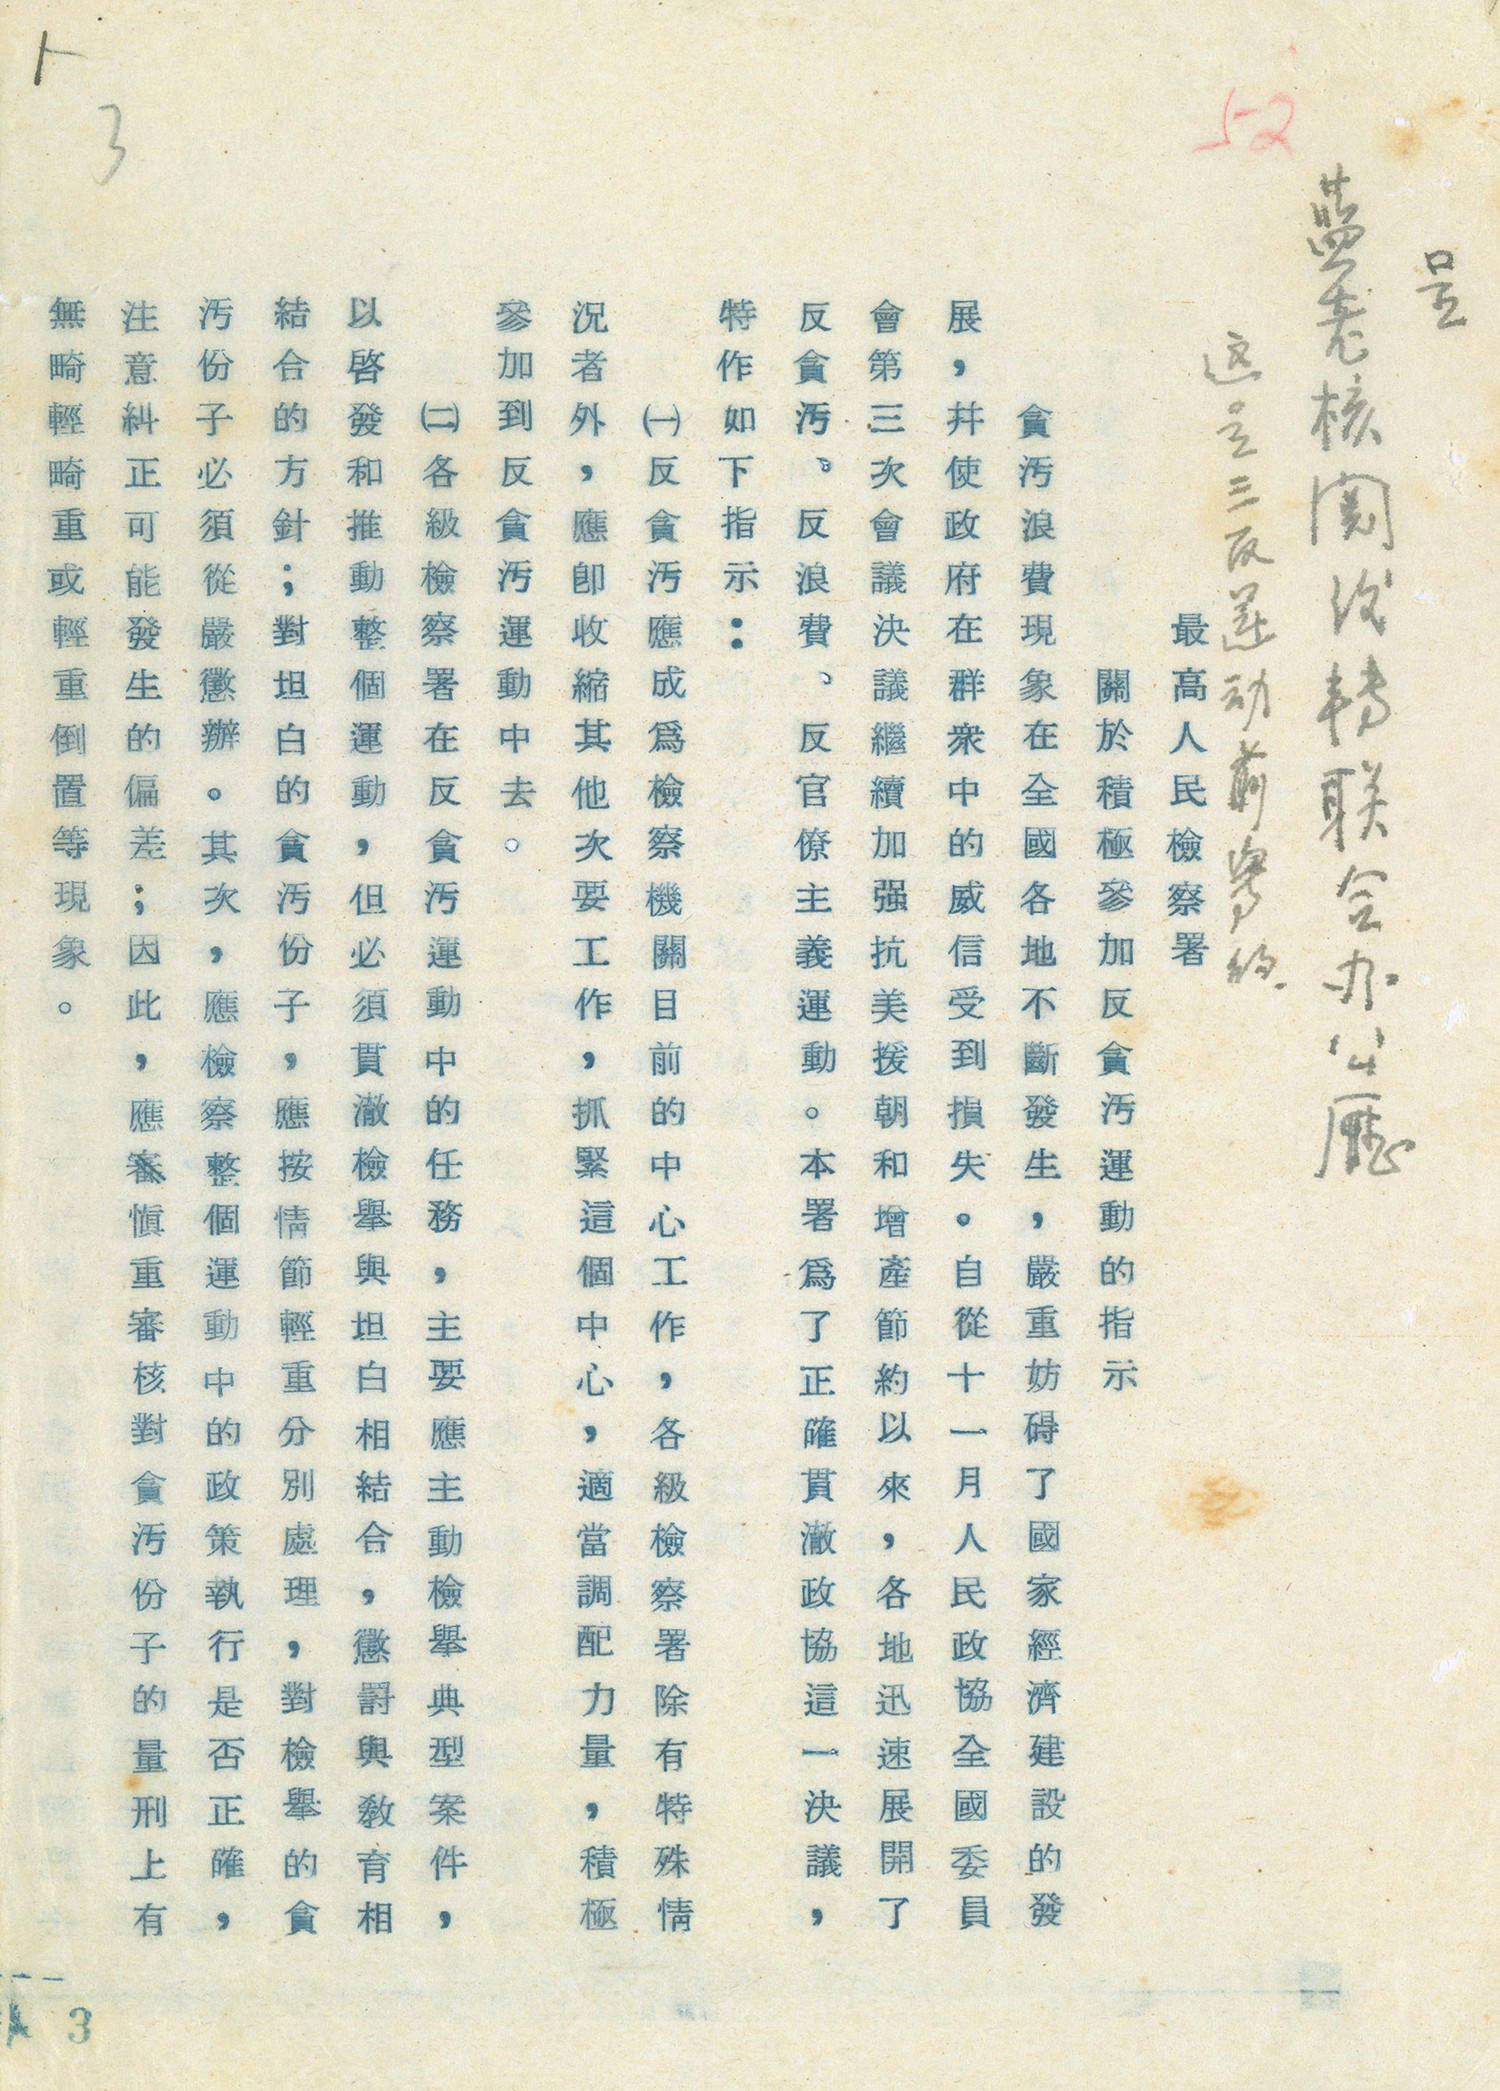 呈
蓝老核阅后转联合办公厅
这是三反运动前写的
52
最高人民檢察署
關於積極參加反貪汚運動的指示
貪汚浪費現象在全國各地不斷發生，嚴重妨碍了國家經濟建設的發
展，幷使政府在群衆中的威信受到損失。自從十一月人民政協全國委員
會第三次會議決議繼續加强抗美援朝和增產節約以來，各地迅速展開了
反貪汚、反浪費、反官僚主義運動。本署爲了正確貫澈政協這一決議，
特作如下指示：
㈠反貪汚應成爲檢察機關目前的中心工作，各級檢察署除有特殊情
況者外，應卽收縮其他次要工作，抓緊這個中心，適當調配力量，積極
參加到反貪汚運動中去。
㈡各級檢察署在反貪汚運動中的任務，主要應主動檢舉典型案件，
以啓發和推動整個運動，但必須貫澈檢舉與坦白相結合，懲罸與敎育相
結合的方針；對坦白的貪汚份子，應按情節輕重分別處理，對檢舉的貪
汚份子必須從嚴懲辦。其次，應檢察整個運動中的政策執行是否正確，
注意糾正可能發生的偏差；因此，應審愼重審核對貪汚份子的量刑上有
無畸輕畸重或輕重倒置等現象。
3
3